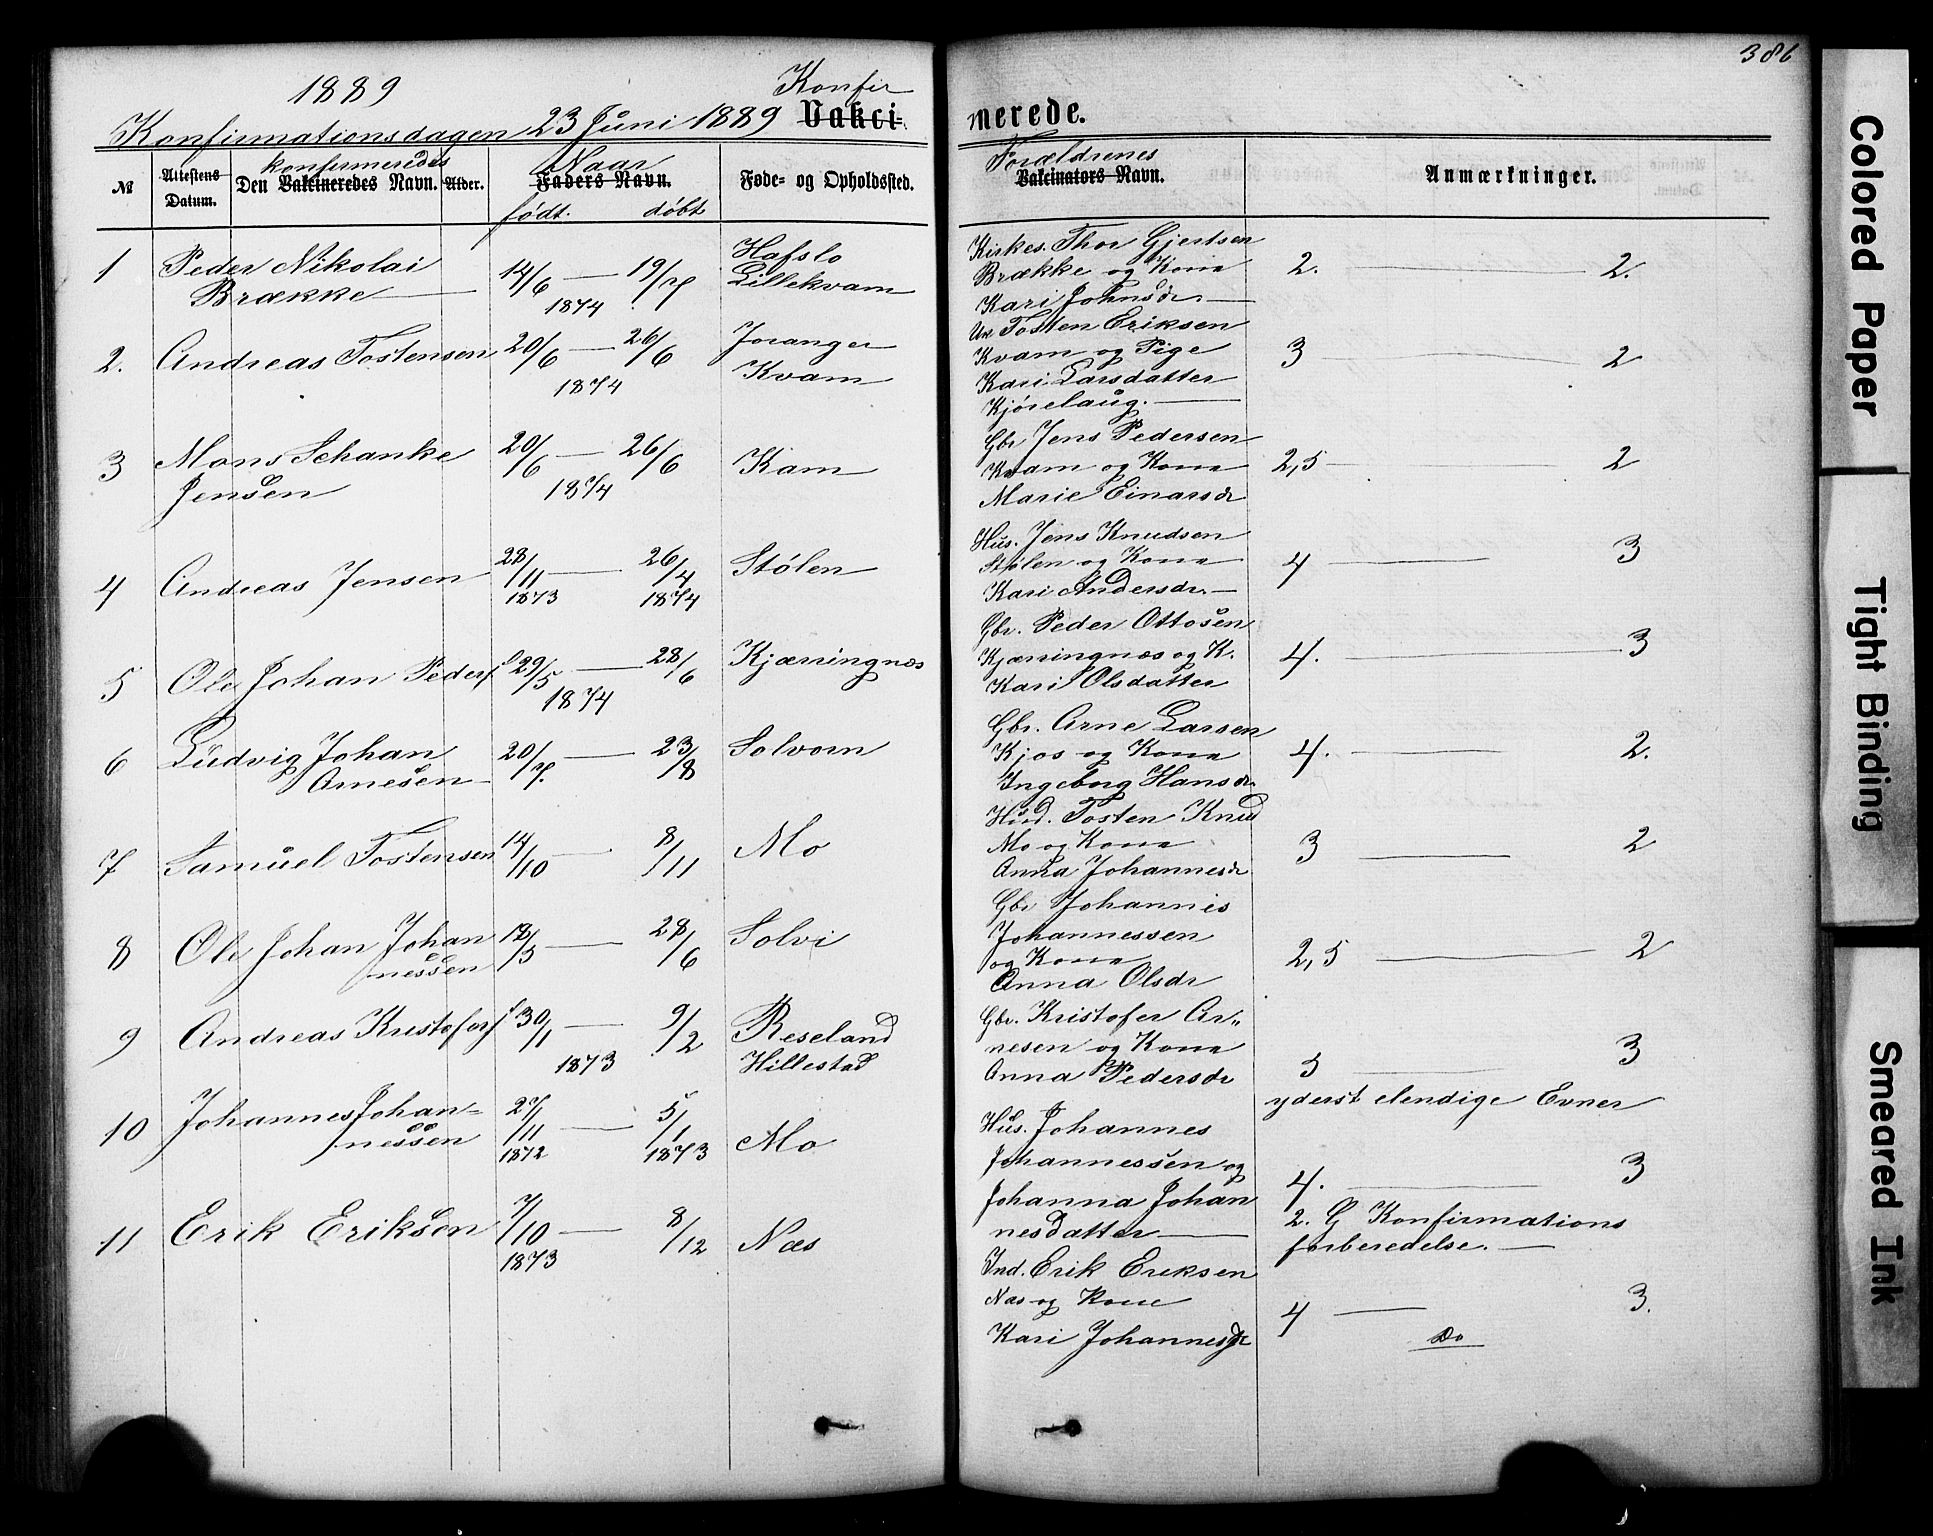 386
1889
Konfir
Konfirmationsdagen 23 Juni 1889 Vakci-
nerede.
№
Attestens Datum.
konfirmeredes
Den Vakcineredes Navn.
Alder.
Naar
Faders Navn.
født. døbt
Føde- og Opholdssted.
Forældrenes
Vakcinators Navn.
Anmærkninger.
1 Peder Nikolai
Brække
14/6 — 19/7
1874
Hafslo
Lillekvam
Kirkes. Thor Gjertsen
Brække og Kona
Kari Johnsdr
2. — 2.
2. Andreas Tostensen
20/6 — 26/6
1874
Joranger
Kvam
Un Tosten Eriksen
Kvam og Pige
Kari Larsdatter
Kjørlaug.
3 — 2
3 Mons Schanke
Jensen
20/6 — 26/6
1874
Kam
Gbr Jens Pedersen
Kvam og Kona
Marie Einarsdr
2,5 — 2
4 Andreas Jensen
28/11 — 26/4
1873 1874
Stølen
Hus. Jens Knudsen
Stølen og Kona
Kari Andersdr.
4 — 3
5 Ole Johan Peders
29/5 — 28/6
1874
Kjærringnes
Gbr. Peder Ottosen
Kjærringnæs og K.
Kari Olsdatter
4. — 3
6 Ludvig Johan
Arnesen
20/7. — 23/8
Solvorn
Gbr. Arne Larsen
Kjos og Kona
Ingeborg Hansdr.
4. — 2.
7 Samuel Tostensen
14/10 — 8/11
Mo
Husd. Tosten Knud
Mo og Kona
Anna Johannesdr
3 — 2
8 Ole Johan Johan
nessen
— 28/6
Solvi
Gbr Johannis
Johannessen
og Kona
Anna Olsdr
2,5 — 2
9 Andreas Kristofers
30/1 — 9/2
1873
Reseland
Hillestad
Gbr. Kristofer Ar„
nesen og Kona
Anna Pedersdr
5 — 3
yderst elendige Evner
10 Johannes Johan=
nessen
27/11 — 5/1
1872 1873
Mo
Hus. Johannes
Johannessen og
Johanna Johan
nesdatter
4. — 3
2. G Konfirmations
forberedelse.
11 Erik Eriksen
7/10 — 8/12
1873
Næs
Ind. Erik Eriksen
Næs og Kone
Kari Johannesdr
4 — 3.
Do
Colored Paper
Tight Binding
Smeared Ink